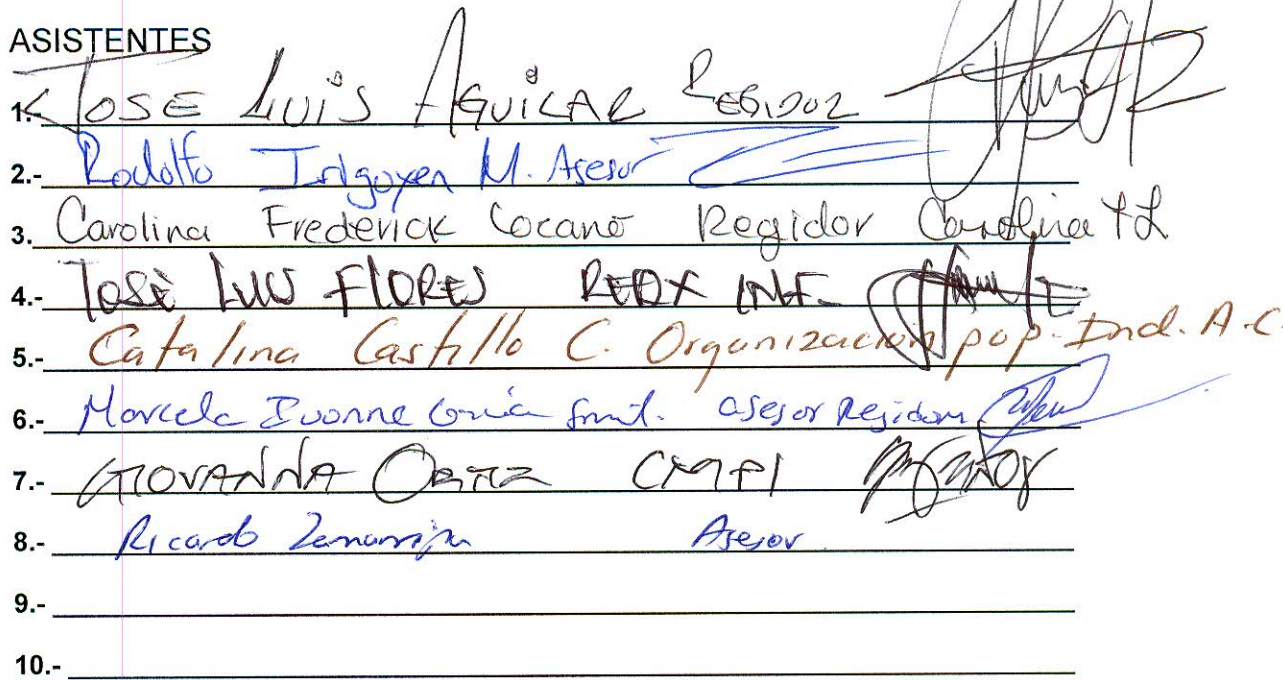 ASISTENTES
1. JOSE LUIS AGUILAR REGIDOR
2.- Rodolfo Irigoyen M. Asesor
3. Carolina Frederick Locano Regidor Carolina FL
4.- JOSÈ LUIS FLORES REDX INF.
5.- Catalina Castillo C. Organización pop. Ind. A.C
6.- Marcela Ivonne asesor Regidora
7.- GIOVANNA ORTIZ CMPI
8.- Ricardo Zamarripa Asesor
9.-
10.-